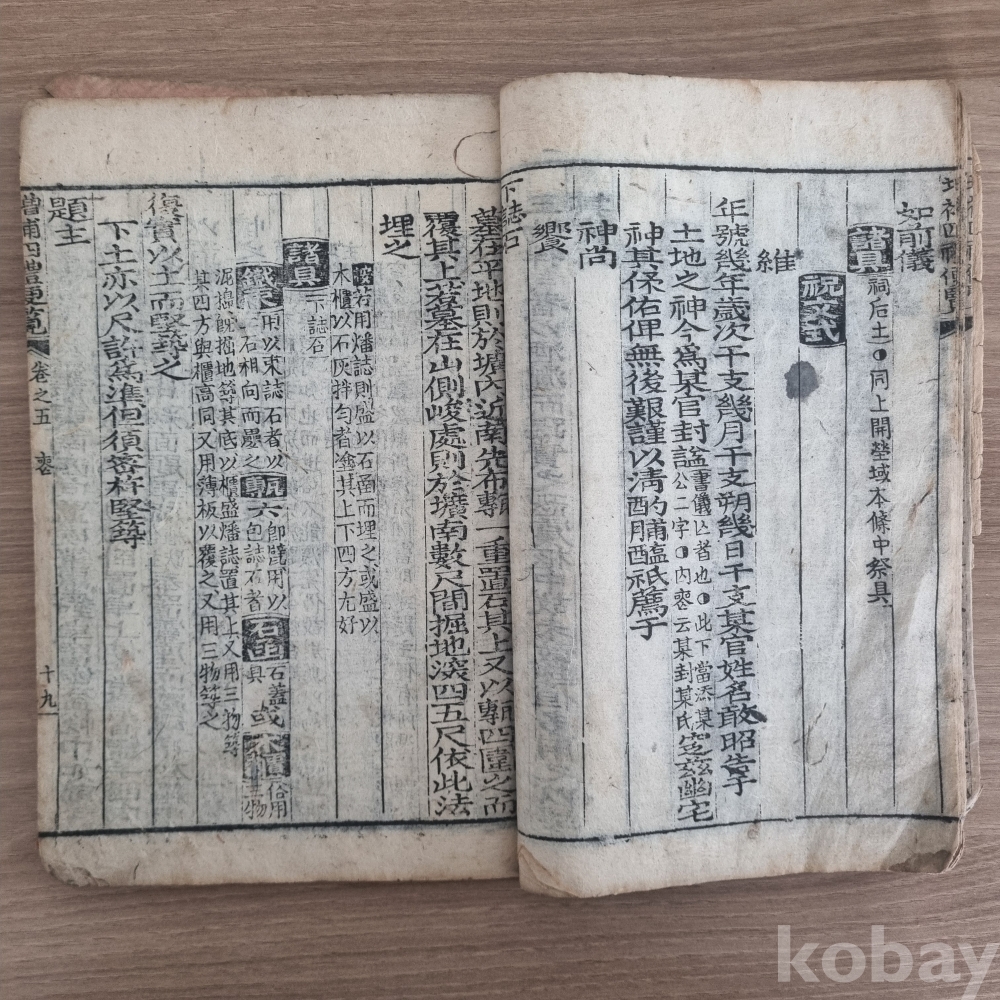 如前儀
諸具 祠后土 ○ 同上開塋域本條中祭具
祝文式
維
年號幾年歲次干支幾月干支朔幾日干支某官姓名敢昭告于
土地之神今爲某官封諡 書儀亡者也 ○ 此下當添某
公二字 ○ 內喪云某封某氏 窆玆幽宅
神其保佑俾無後艱謹以淸酌脯醢祇薦于
神尙
饗
下誌石
墓在平地則於壙內近南先布甎一重置石其上又以甎四圍之而
覆其上若墓在山側峻處則於壙南數尺間掘地深四五尺依此法
埋之
按若用燔誌則盛以石凾而埋之或盛以
木櫃以石灰拌勻者塗其上下四方尤好
諸具 下誌石
鐵 用以束誌石者以
石相向而疊之 甎 六 卽甓用以
包誌石者 石凾 石蓋
具 或木櫃 俗用
三物
泥 掘地 其底以櫃盛燔誌置其上又用三物築
其四方與櫃高同又用薄板以覆之又用三物築之
復實以土而堅築之
下土亦以尺許爲準但須密杵堅築
題主
增補四禮便覽 卷之五 喪 十九
kobay